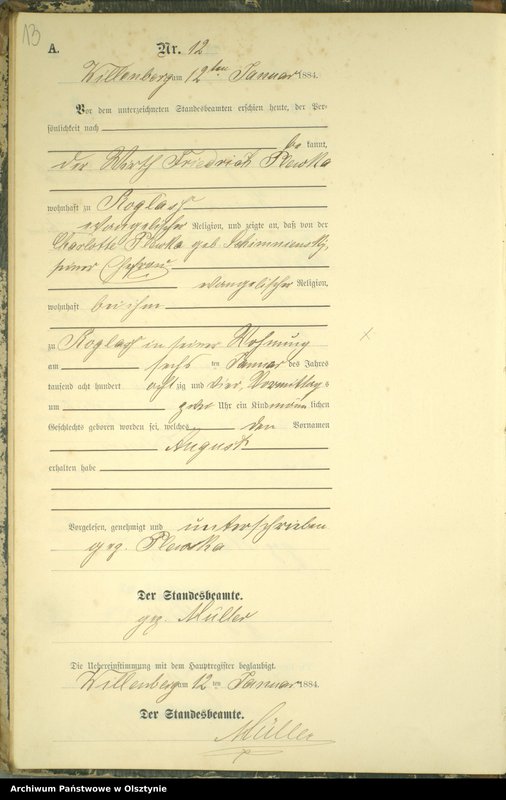 13
A. Nr. 12
Willenberg am 12ten Januar 1884.
Vor dem unterzeichneten Standesbeamten erschien heute, der Per-
sönlichkeit nach
be kannt,
der Wirth Friedrich Plewka
wohnhaft zu Roglass
evangelischer Religion, und zeigte an, daß von der
Charlotte Plewka geb.
seiner Ehefrau
evangelischer Religion,
wohnhaft bei ihm
zu Roglass in seiner Wohnung
am sechs ten Januar des Jahres
tausend acht hundert acht zig und vier, Vormittag s
um Uhr ein Kind männ lichen
Geschlechts geboren worden sei, welches den Vornamen
August
erhalten habe
Vorgelesen, genehmigt und unterschrieben
gez. Plewka
Der Standesbeamte.
gez. Müller
Die Uebereinstimmung mit dem Hauptregister beglaubigt.
Willenberg am 12 ten Januar 1884.
Der Standesbeamte.
Müller
Archiwum Państwowe w Olsztynie